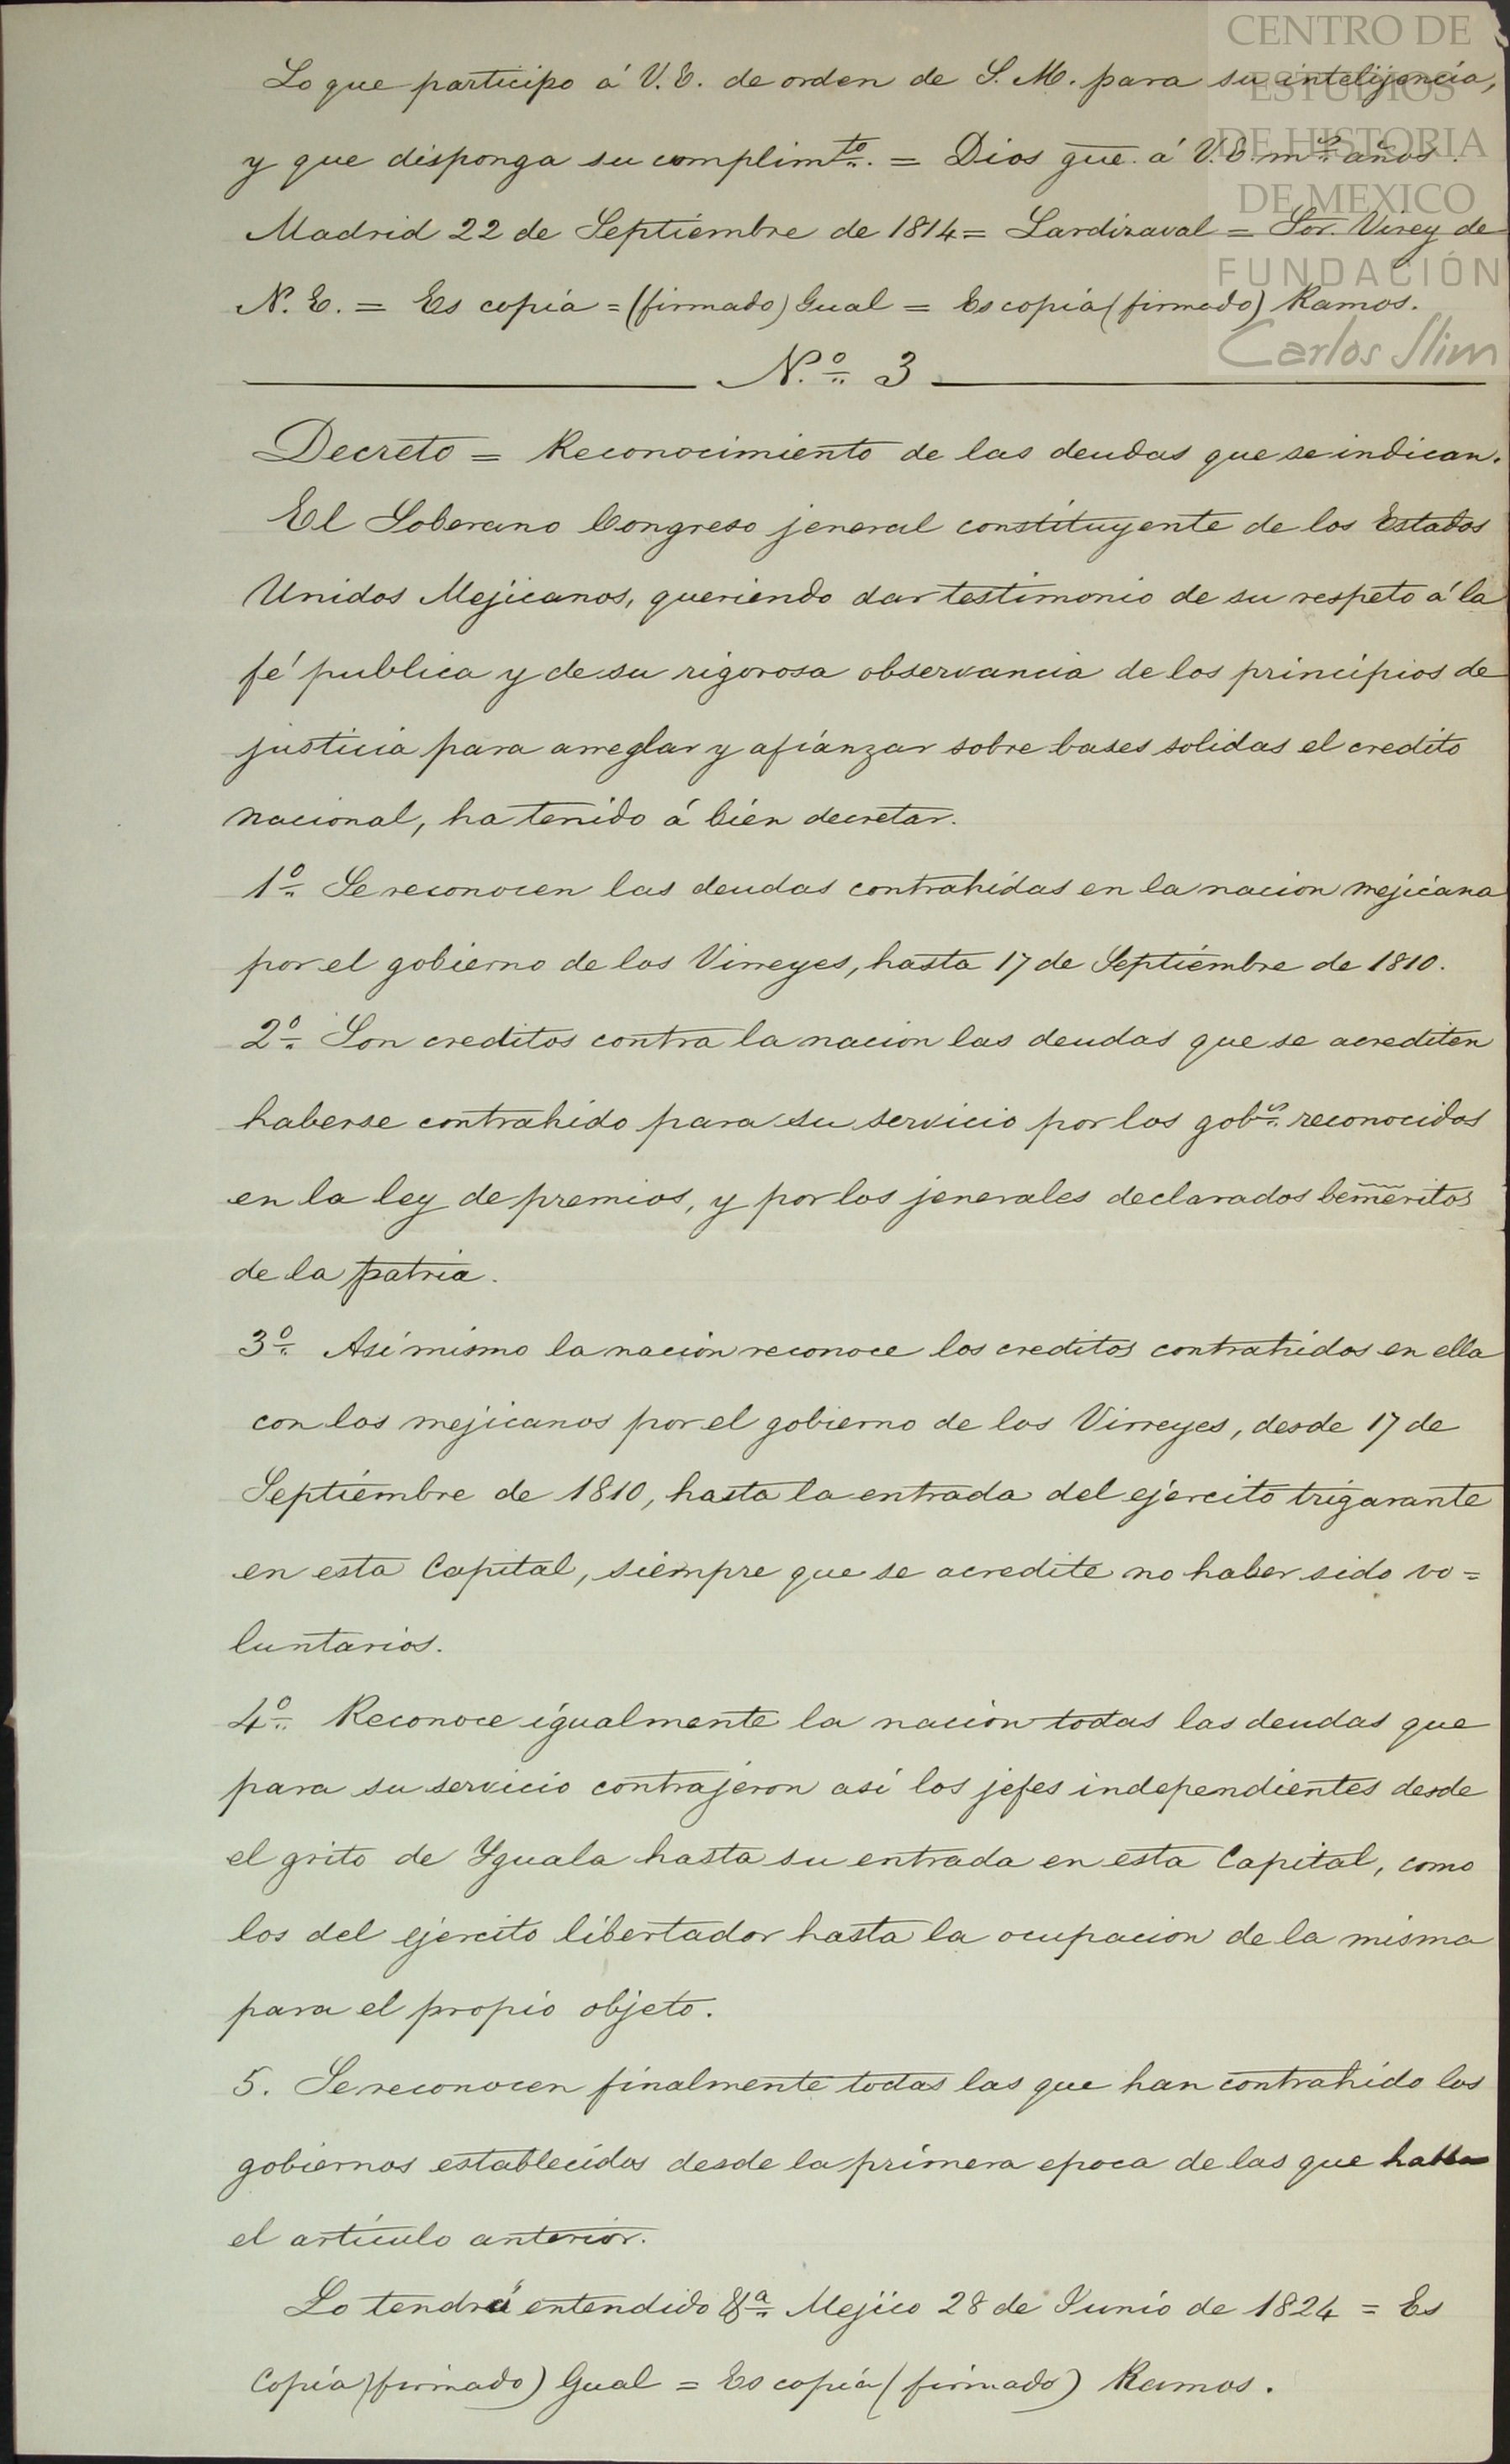 CENTRO DE
ESTUDIOS
DE HISTORIA
DE MEXICO
FUNDACIÓN
Carlos Slim
Lo que participo á V. E. de orden de S. M. para su intelijencia,
y que disponga su complimto. = Dios gue. á V. E. ms. años.
Madrid 22 de Septiembre de 1814 = Lardizaval = Sor. Virey de
N. E. = Es copia = (firmado) Gual = Es copia (firmado) Ramos.
N.o 3
Decreto = Reconocimiento de las deudas que se indican.
El Soberano Congreso jeneral constituyente de los Estados
Unidos Mejicanos, queriendo dar testimonio de su respeto á la
fé publica y de su rigorosa observancia de los principios de
justicia para arreglar y afianzar sobre bases solidas el credito
nacional, ha tenido á bien decretar.
1o. Se reconocen las deudas contrahidas en la nacion mejicana
por el gobierno de los Virreyes, hasta 17 de Septiembre de 1810.
2o. Son creditos contra la nacion las deudas que se acrediten
haberse contrahido para su servicio por los gobs. reconocidos
en la ley de premios, y por los jenerales declarados bemeritos
de la patria.
3o. Asimismo la nación reconoce los creditos contrahidos en ella
con los mejicanos por el gobierno de los Virreyes, desde 17 de
Septiembre de 1810, hasta la entrada del ejercito trigarante
en esta Capital, siempre que se acredite no haber sido vo=
luntarios.
4o. Reconoce igualmente la nacion todas las deudas que
para su servicio contrajeron asi los jefes independientes desde
el grito de Yguala hasta su entrada en esta Capital, como
los del ejercito libertador hasta la ocupacion de la misma
para el propio objeto.
5. Se reconocen finalmente todas las que han contrahido los
gobiernos establecidos desde la primera epoca de las que habla
el artículo anterior.
Lo tendrá entendido &a. Mejico 28 de Junio de 1824 = Es
Copia (firmado) Gual = Es copia (firmado) Ramos.